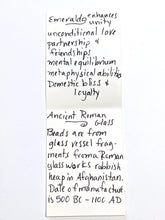 Emeralds enhances
unity
unconditional love
partnership &
friendships
mental equilibrium
metaphysical abilities
Domestic bliss &
loyalty
Ancient Roman
Glass
Beads are from
glass vessel frag-
ments from a Roman
glass works rubbish
heap in Afghanistan.
Date of mfd mat'l
is 500 BC - 1100 AD